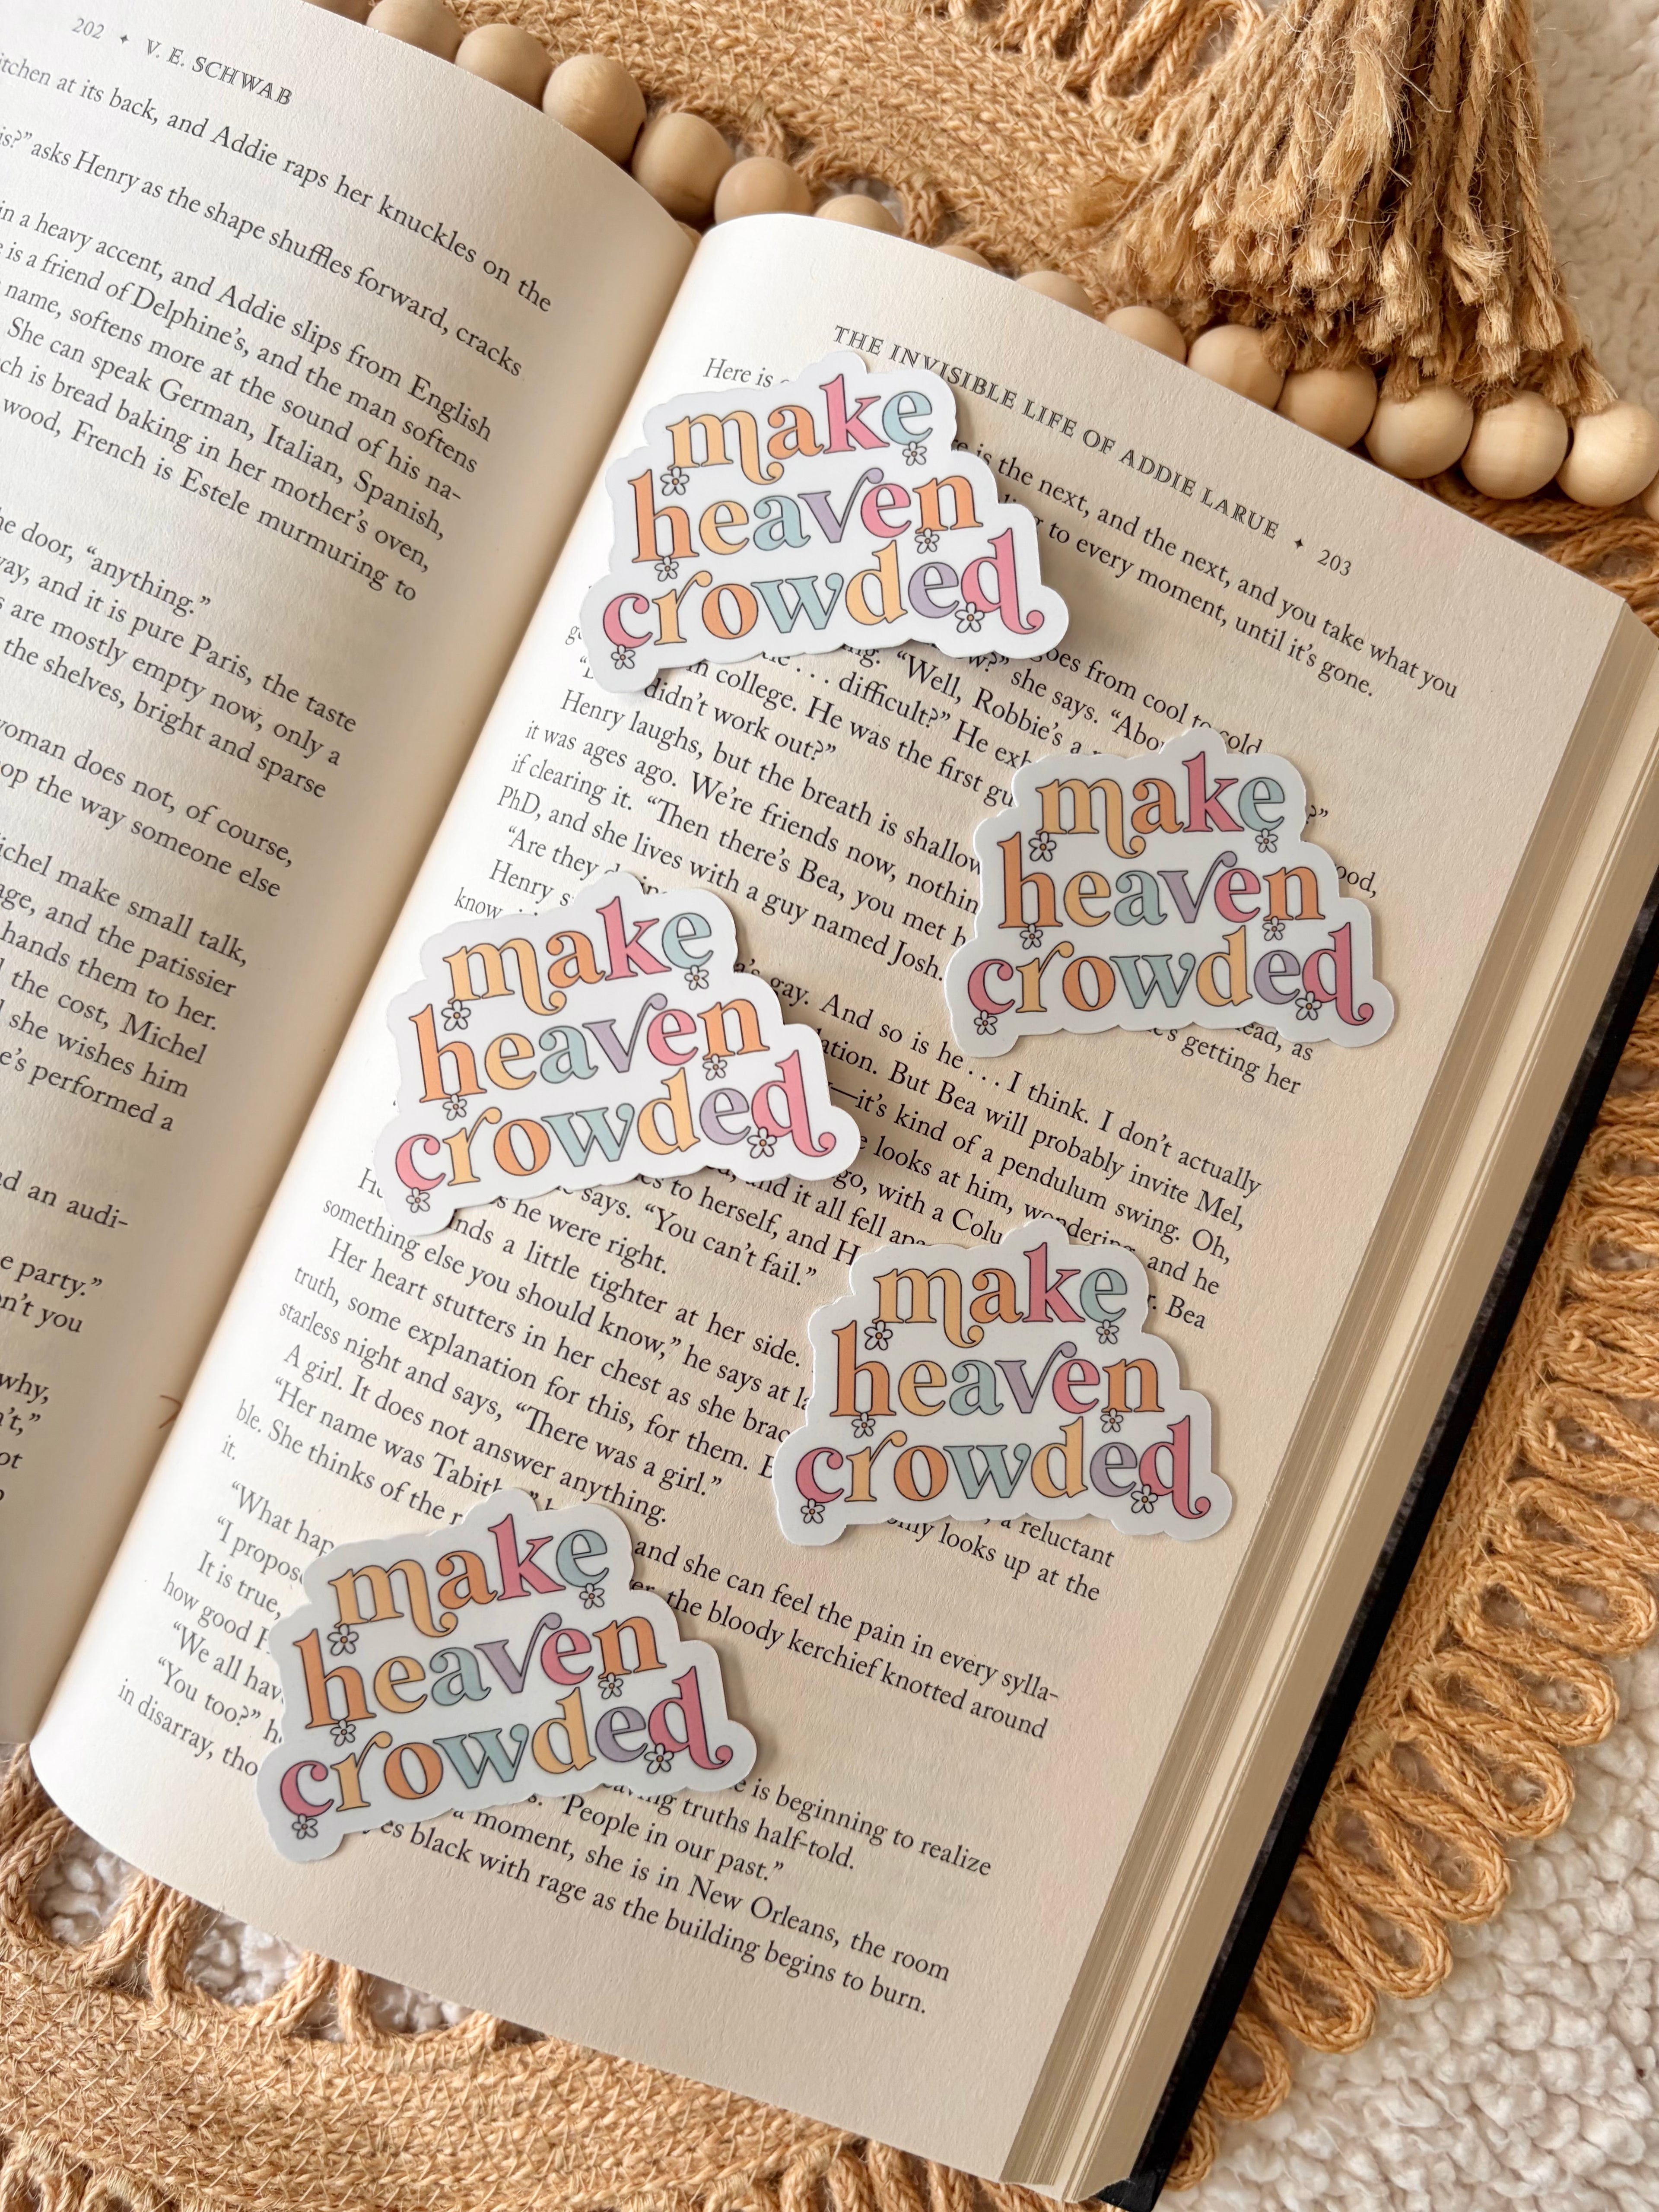 202 ✦ V. E. SCHWAB
itchen at its back, and Addie raps her knuckles on the
is?” asks Henry as the shape shuffles forward, cracks
in a heavy accent, and Addie slips from English
is a friend of Delphine’s, and the man softens
name, softens more at the sound of his na-
She can speak German, Italian, Spanish,
ch is bread baking in her mother’s oven,
wood, French is Estele murmuring to
he door, “anything.”
way, and it is pure Paris, the taste
are mostly empty now, only a
the shelves, bright and sparse
woman does not, of course,
op the way someone else
ichel make small talk,
age, and the patissier
hands them to her.
the cost, Michel
she wishes him
e’s performed a
d an audi-
e party.”
n’t you
why,
’t,”
ot
THE INVISIBLE LIFE OF ADDIE LARUE ✦ 203
Here is
is the next, and the next, and you take what you
to every moment, until it’s gone.
goes from cool to cold
she says. “Abo
“Well, Robbie’s a
difficult?” He exh
in college. He was the first gu
didn’t work out?”
Henry laughs, but the breath is shallow
it was ages ago. We’re friends now, nothin
if clearing it. “Then there’s Bea, you met h
PhD, and she lives with a guy named Josh.
“Are they
Henry s
know
ood,
ead, as
getting her
gay. And so is he . . . I think. I don’t actually
ation. But Bea will probably invite Mel,
—it’s kind of a pendulum swing. Oh,
looks at him, wondering, and he
go, with a Colu
. Bea
and it all fell apa
es to herself, and H
says. “You can’t fail.”
he were right.
nds a little tighter at her side.
something else you should know,” he says at la
Her heart stutters in her chest as she brac
truth, some explanation for this, for them.
starless night and says, “There was a girl.”
A girl. It does not answer anything.
“Her name was Tabith
and she can feel the pain in every sylla-
ble. She thinks of the r
the bloody kerchief knotted around
it.
“What hap
“I propose
a reluctant
It is true,
only looks up at the
how good
“We all hav
“You too?” h
in disarray, tho
is beginning to realize
truths half-told.
“People in our past.”
a moment, she is in New Orleans, the room
es black with rage as the building begins to burn.
make
heaven
crowded
make
heaven
crowded
make
heaven
crowded
make
heaven
crowded
make
heaven
crowded